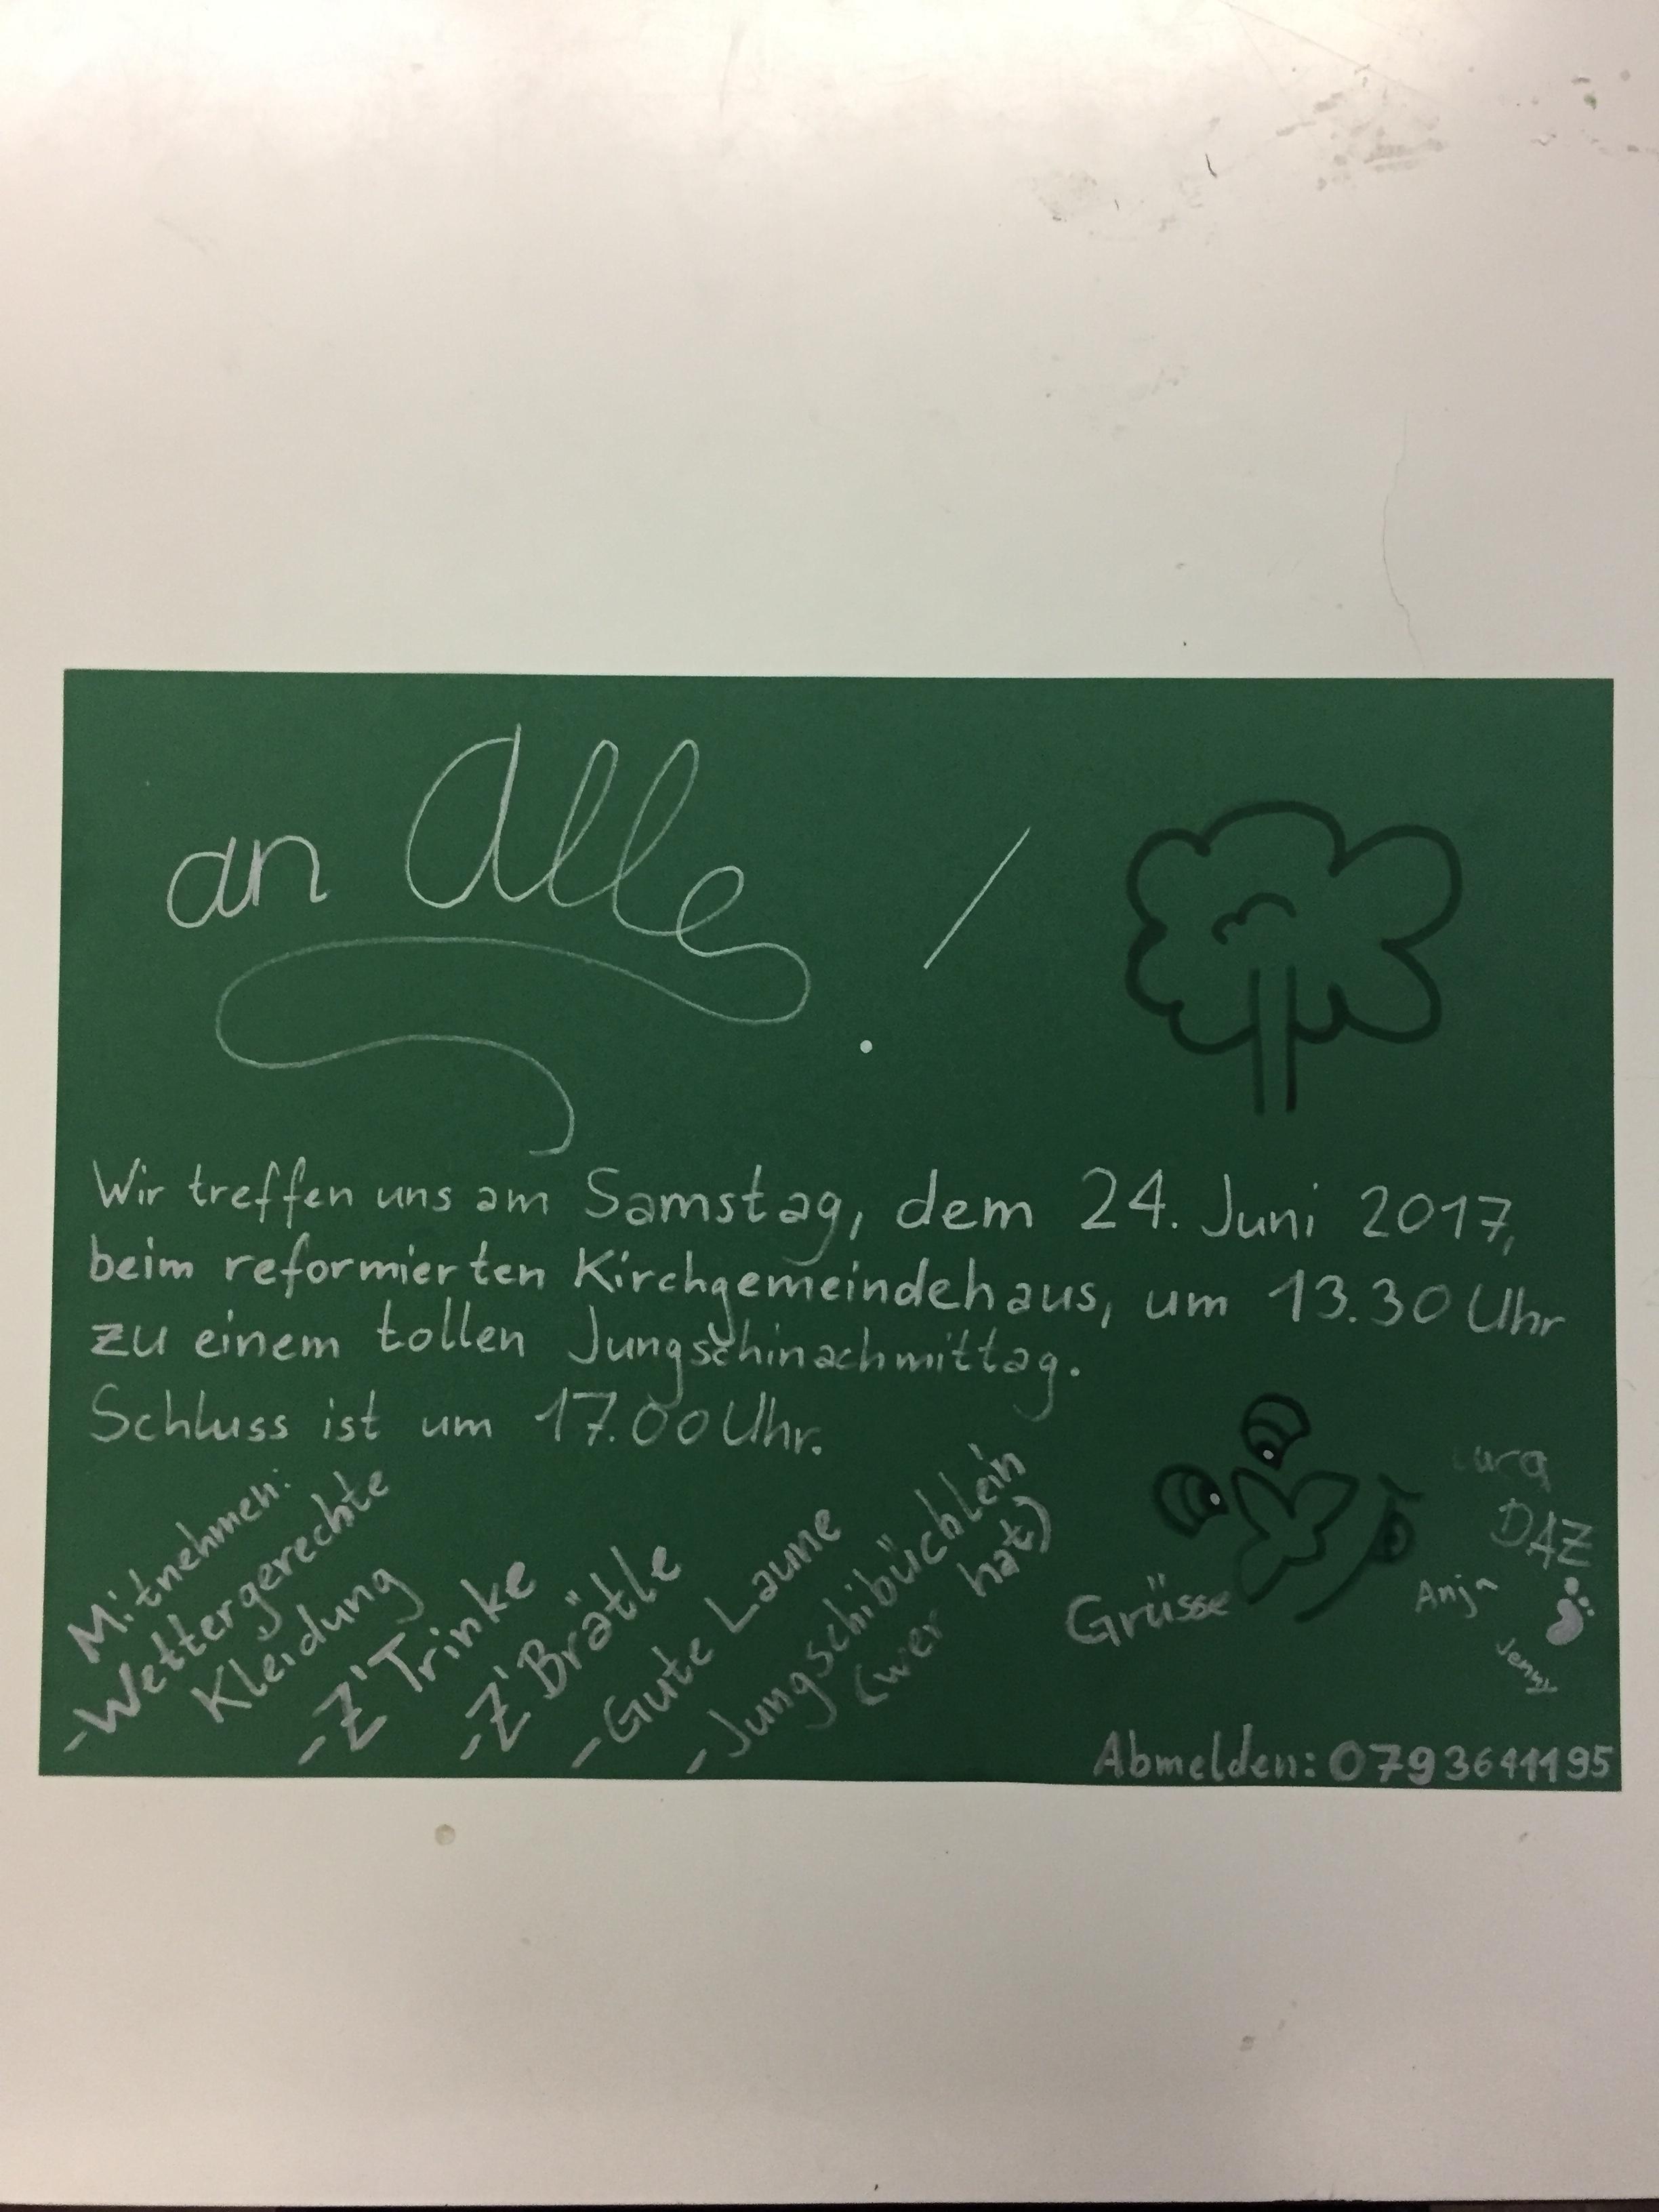 an Alle!
Wir treffen uns am Samstag, dem 24. Juni 2017,
beim reformierten Kirchgemeindehaus, um 13.30 Uhr
zu einem tollen Jungschinachmittag.
Schluss ist um 17.00 Uhr.
Mitnehmen:
-Wettergerechte
Kleidung
-Z'Trinke
-Z'Brätle
-Gute Laune
-Jungschibüchlein
(wer hat)
Grüsse
DAZ
Anja
Jenny
Abmelden: 0793641195